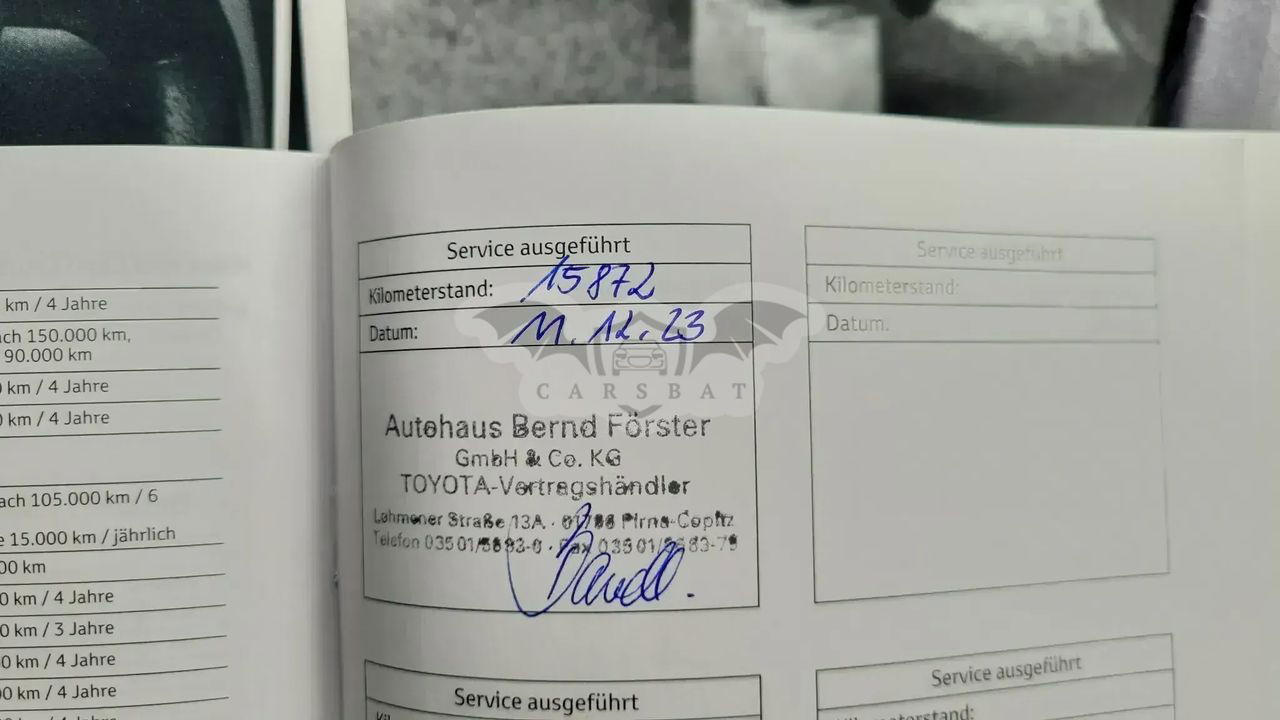 km / 4 Jahre
ach 150.000 km,
90.000 km
km / 4 Jahre
km / 4 Jahre
ach 105.000 km / 6
e 15.000 km / jährlich
00 km
0 km / 4 Jahre
0 km / 3 Jahre
00 km / 4 Jahre
00 km / 4 Jahre
Service ausgeführt
Kilometerstand: 15872
Datum: 11.12.23
CARSBAT
Autohaus Bernd Förster
GmbH & Co. KG
TOYOTA-Vertragshändler
Lohmener Straße 13A · 01796 Pirna-Copitz
Telefon 03501/ -0 · Fax 03501/
Service ausgeführt
Service ausgeführt
Kilometerstand:
Datum:
Service ausgeführt
Kilometerstand: